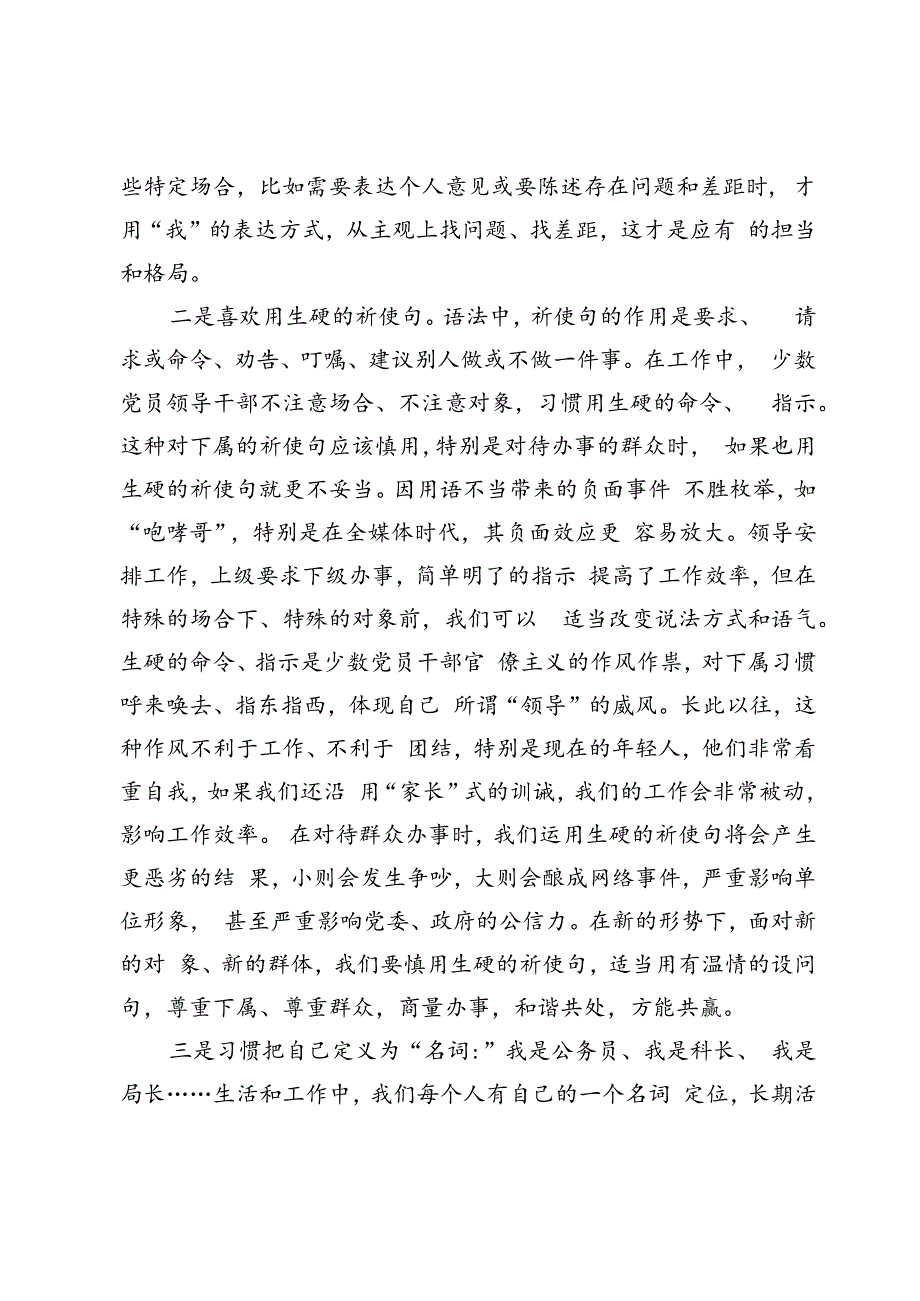 些特定场合，比如需要表达个人意见或要陈述存在问题和差距时， 才
用“我”的表达方式，从主观上找问题、找差距，这才是应有 的担当
和格局。
二是喜欢用生硬的祈使句。语法中，祈使句的作用是要求、 请
求或命令、劝告、叮嘱、建议别人做或不做一件事。在工作中， 少数
党员领导干部不注意场合、不注意对象，习惯用生硬的命令、 指示。
这种对下属的祈使句应该慎用，特别是对待办事的群众时， 如果也用
生硬的祈使句就更不妥当。因用语不当带来的负面事件 不胜枚举，如
“咆哮哥”，特别是在全媒体时代，其负面效应更 容易放大。领导安
排工作，上级要求下级办事，简单明了的指示 提高了工作效率，但在
特殊的场合下、特殊的对象前，我们可以 适当改变说法方式和语气。
生硬的命令、指示是少数党员干部官 僚主义的作风作祟，对下属习惯
呼来唤去、指东指西，体现自己 所谓“领导”的威风。长此以往，这
种作风不利于工作、不利于 团结，特别是现在的年轻人，他们非常看
重自我，如果我们还沿 用“家长”式的训诫，我们的工作会非常被动，
影响工作效率。 在对待群众办事时，我们运用生硬的祈使句将会产生
更恶劣的结 果，小则会发生争吵，大则会酿成网络事件，严重影响单
位形象， 甚至严重影响党委、政府的公信力。在新的形势下，面对新
的对 象、新的群体，我们要慎用生硬的祈使句，适当用有温情的设问
句，尊重下属、尊重群众，商量办事，和谐共处，方能共赢。
三是习惯把自己定义为“名词：”我是公务员、我是科长、 我是
局长……生活和工作中，我们每个人有自己的一个名词 定位，长期活